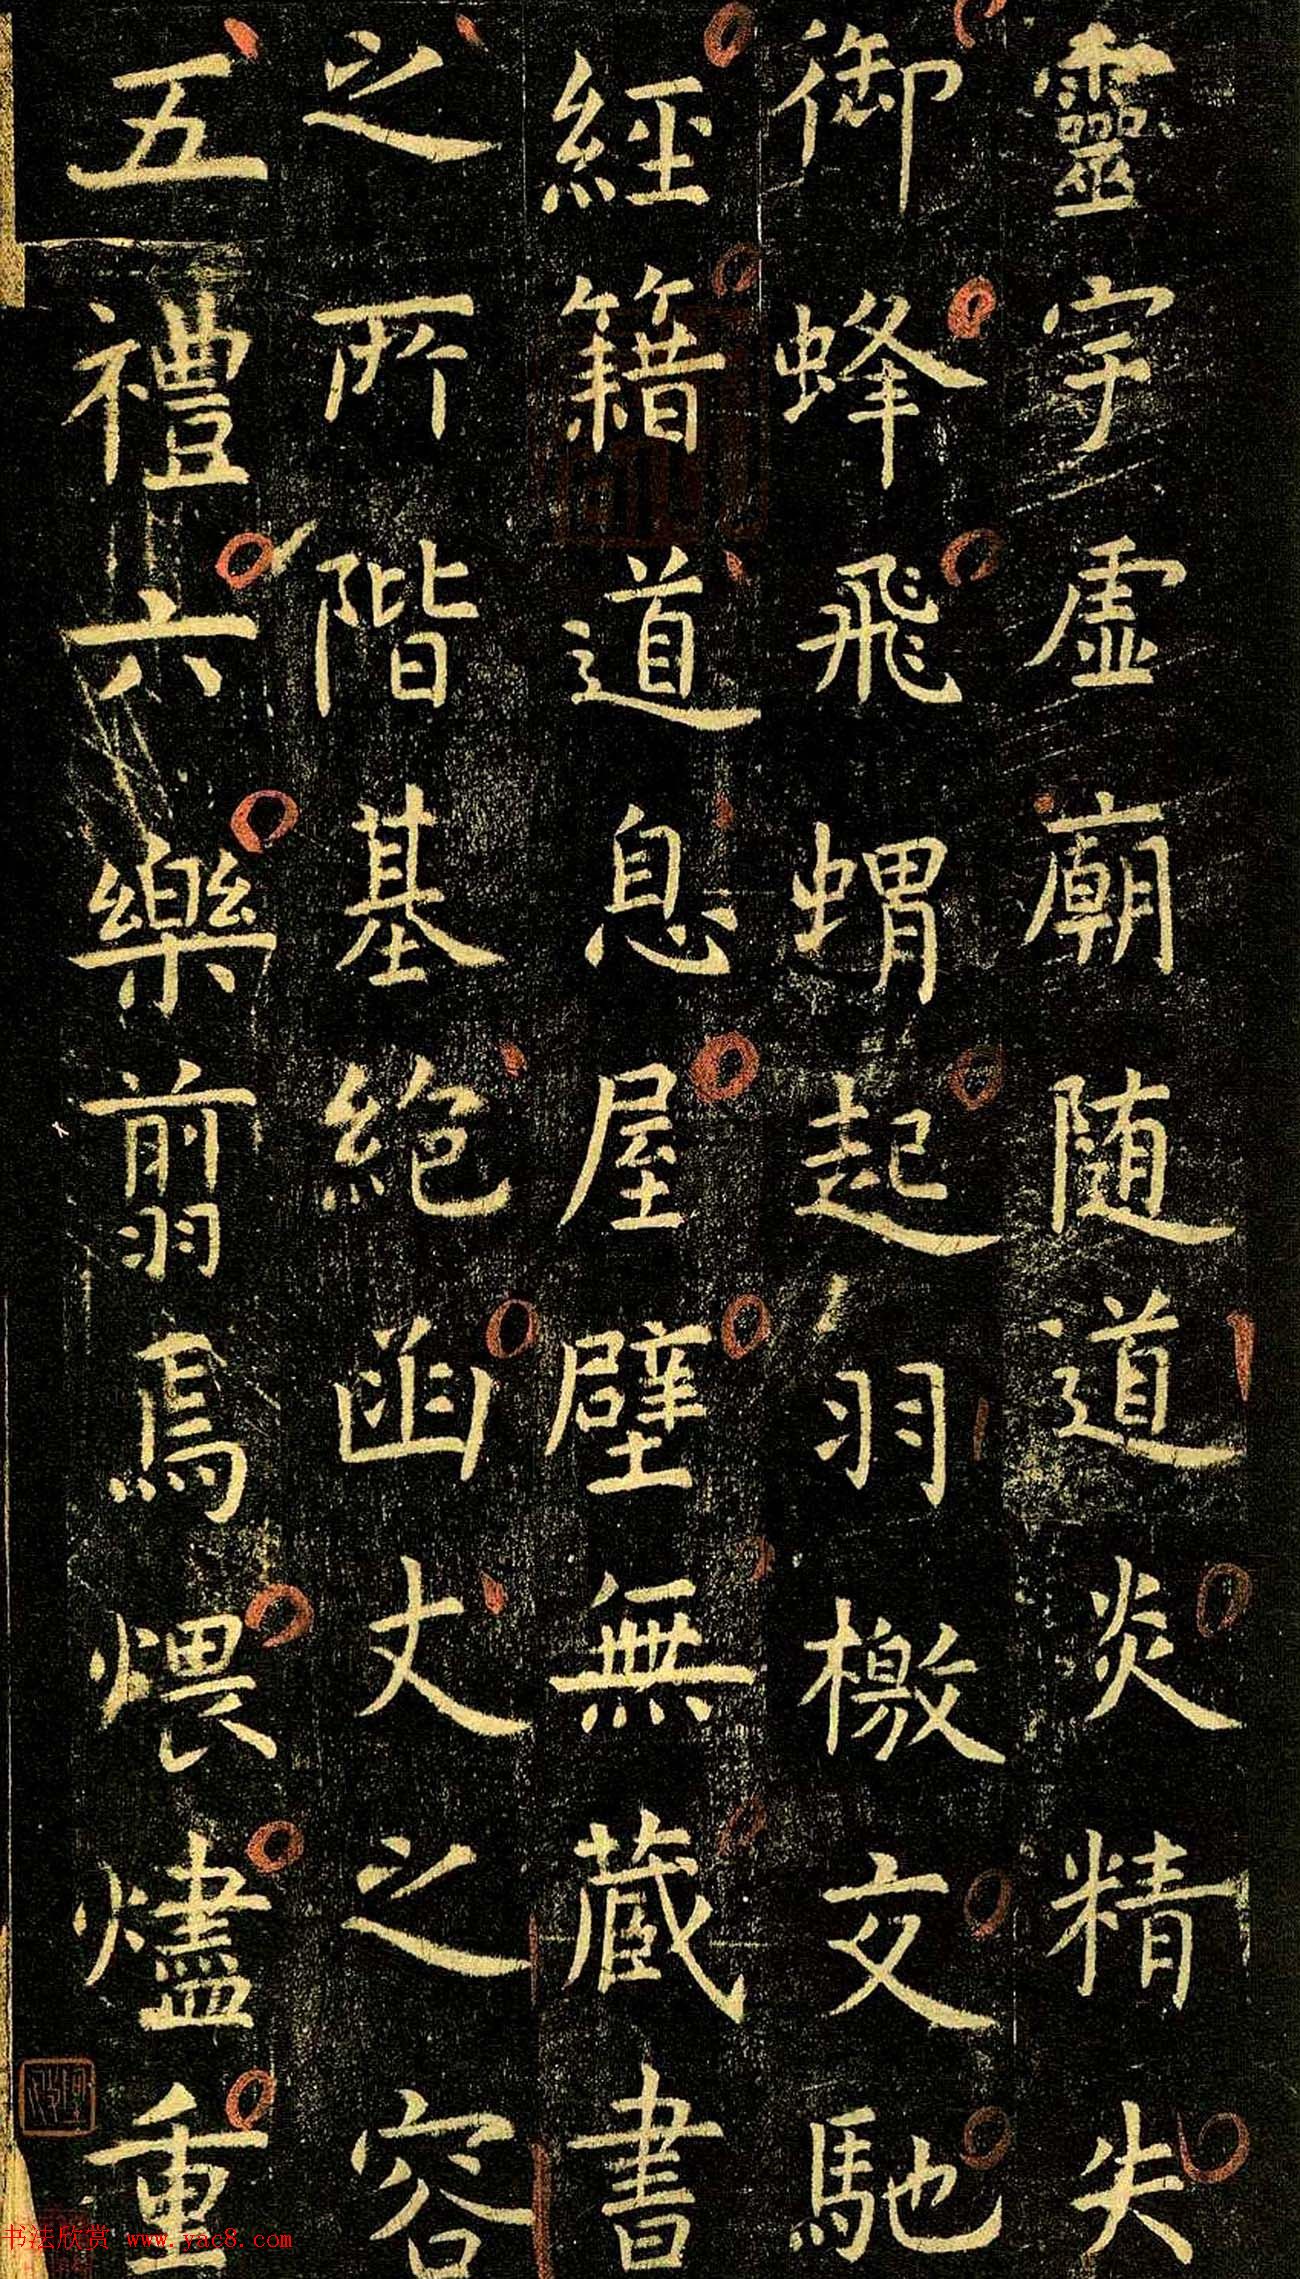 靈宇虛廟随道炎精失
御蜂飛蝟起羽檄文馳
經籍道息屋壁無藏書
之所階基絶函丈之容
五禮六樂翦焉煨燼重
书法欣赏 www.yac8.com